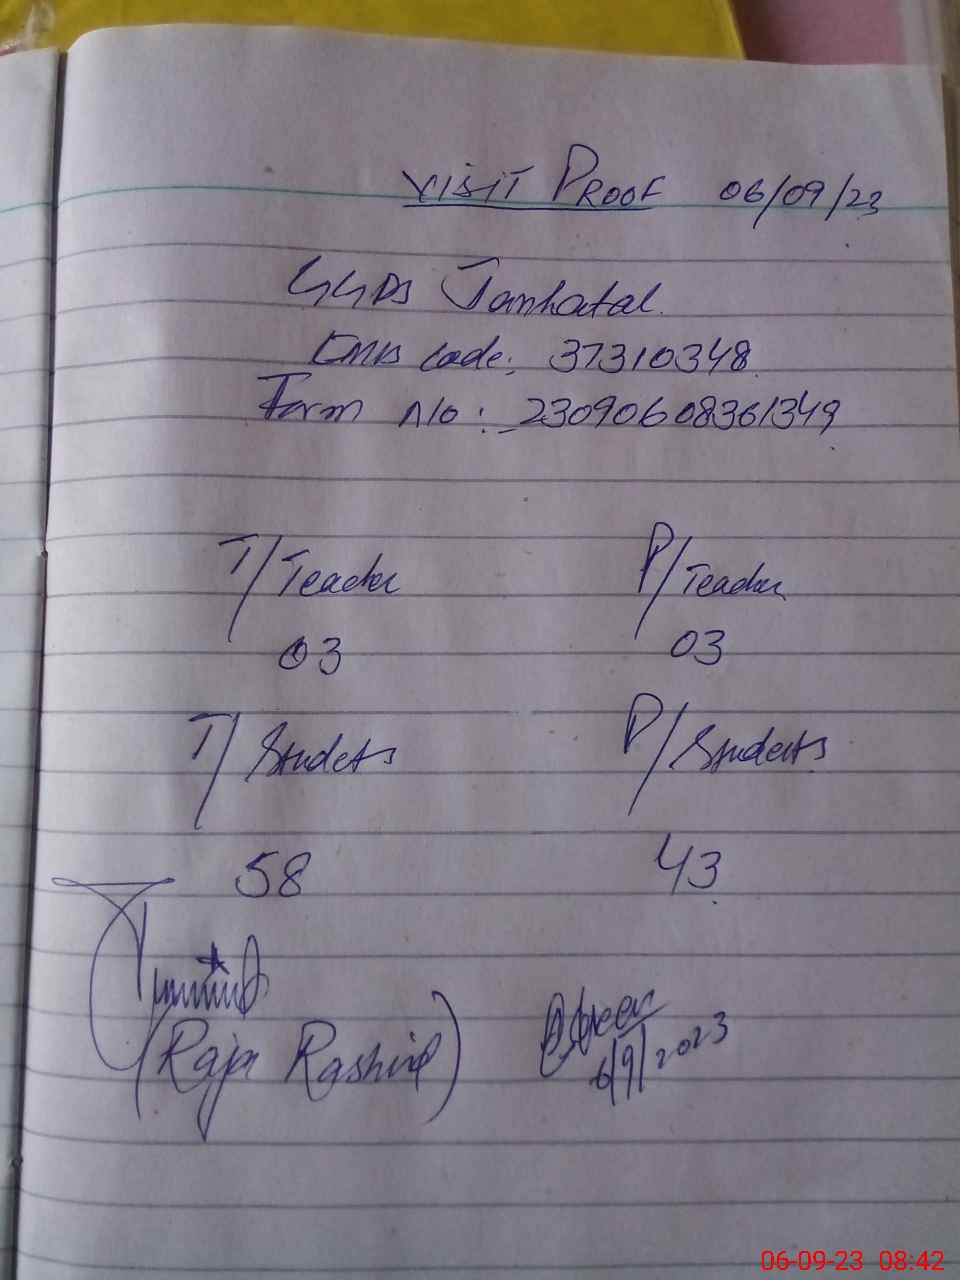 VISIT PROOF 06/09/23
GGPS Jamhatal.
EMIS Code: 37310348
Form No: 23090608361349
T/Teacher P/Teacher
03 03
T/Students P/Students
58 43
(Raja Rashid)
6/9/2023
06-09-23 08:42